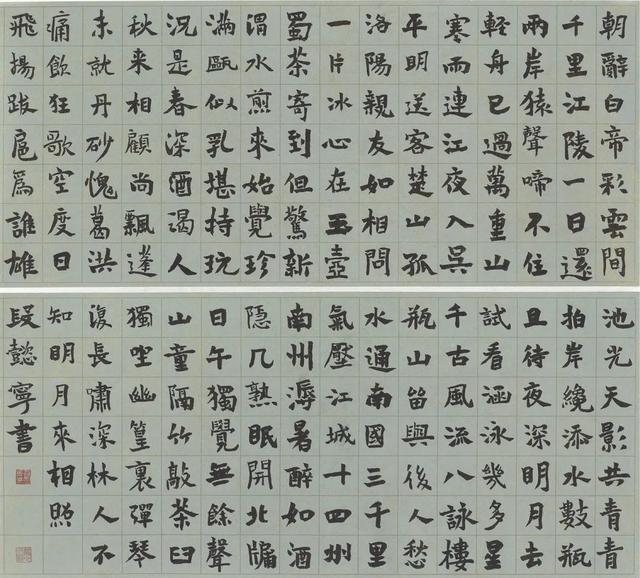 朝辭白帝彩雲間
千里江陵一日還
兩岸猿聲啼不住
輕舟已過萬重山
寒雨連江夜入吳
平明送客楚山孤
洛陽親友如相問
一片冰心在玉壺
蜀茶寄到但驚新
渭水煎來始覺珍
滿甌似乳堪持玩
況是春深酒渴人
秋來相顧尚飄蓬
未就丹砂愧葛洪
痛飲狂歌空度日
飛揚跋扈爲誰雄
池光天影共青青
拍岸纔添水數瓶
且待夜深明月去
試看涵泳幾多星
千古風流八詠樓
瓶山留與後人愁
水通南國三千里
氣壓江城十四州
南州溽暑醉如酒
隱几熟眠開北牖
日午獨覺無餘聲
山童隔竹敲茶臼
獨坐幽篁裏彈琴
復長嘯深林人不
知明月來相照
段懿寧書